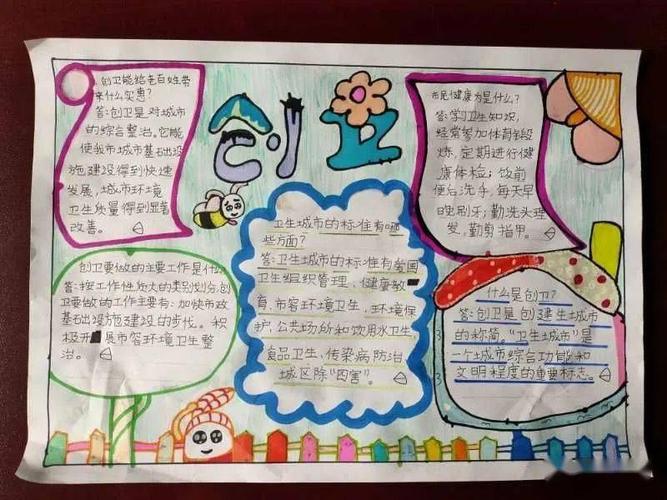 创卫
创卫能给老百姓带
来什么实惠?
答:创卫是对城市
的综合整治,它能
使我市城市基础设
施建设得到快速
发展,城市环境
卫生质量得到显著
改善。
市民健康为是什么?
答:学习卫生知识,
经常参加体育锻
炼,定期进行健
康体检;饭前
便后洗手,每天早
晚刷牙;勤洗头理
发,勤剪指甲。
卫生城市的标准有哪
些方面?
答:卫生城市的标准有爱国
卫生组织管理,健康教
育,市容环境卫生,环境保
护,公共场所和饮用水卫生,
食品卫生、传染病防治
城区除“四害”。
创卫要做的主要工作是什
答:按工作性质大的类别划分,创
卫要做的工作主要有:加快市政
基础设施建设的步伐。积
极开展市容环境卫生整
治。
什么是创卫?
答:创卫是创建生城市
的称简。“卫生城市”是
一个城市综合功能和
文明程度的重要标志。